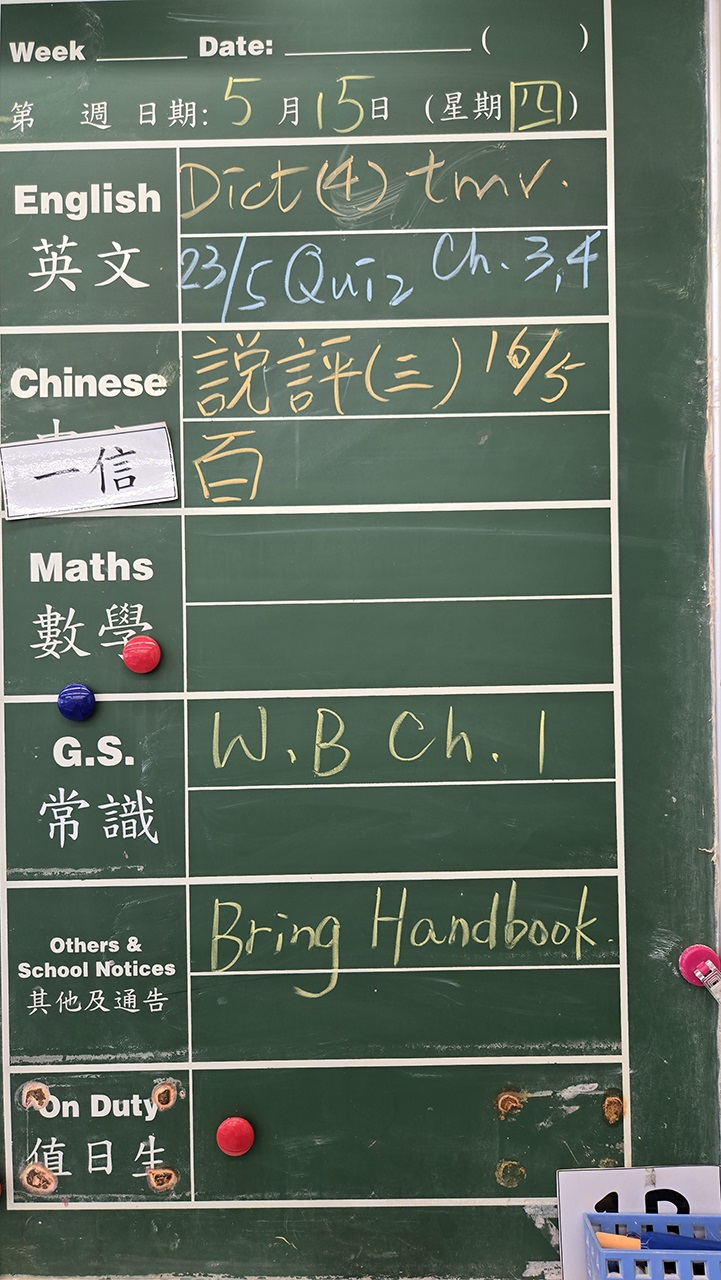 Week ____ Date: ________ ( )
第 週 日期: 5 月 15 日 (星期 四)
English Dict (4) tmr.
英文 23/5 Quiz Ch. 3,4
Chinese 說評(三) 16/5
一信 百
Maths
數學
G.S. W.B Ch. 1
常識
Others & Bring Handbook.
School Notices
其他及通告
On Duty
值日生